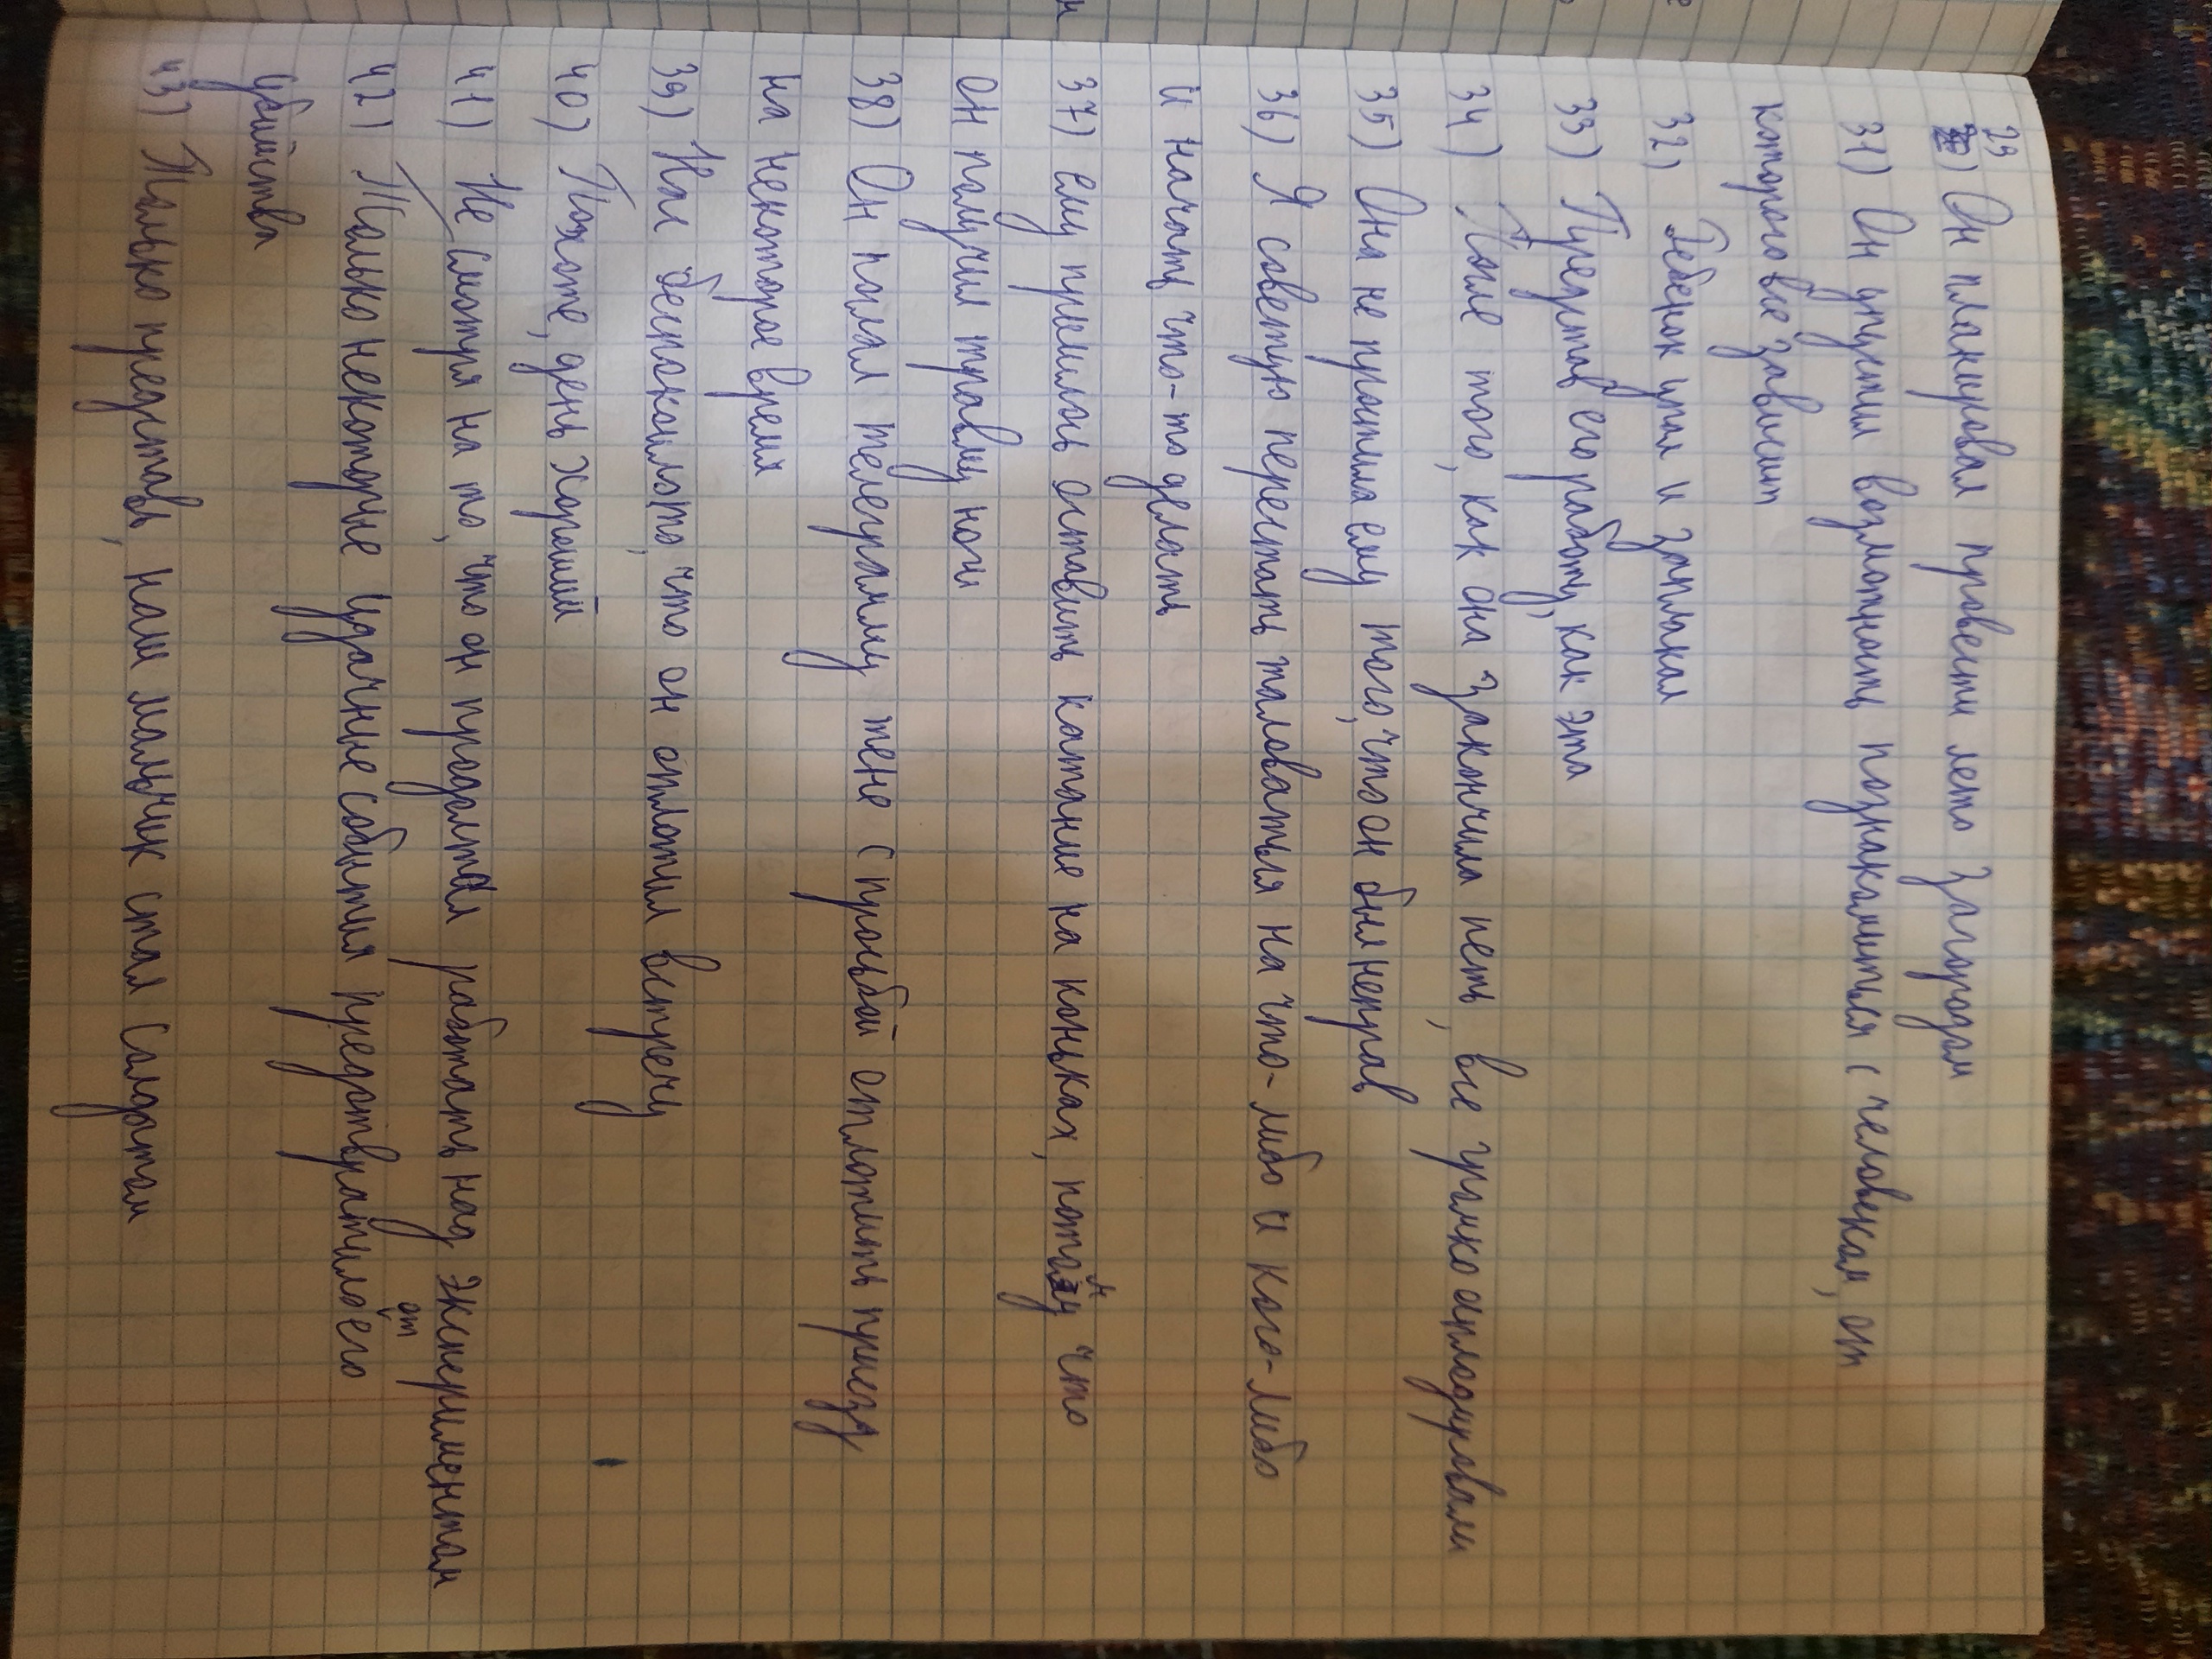 29) Он планировал провести лето загородом
31) Он упустил возможность познакомиться с человеком, от
которого все зависит
32) Ребенок упал и заплакал
33) Представ его работу, как эта
34) После того, как она закончила петь, все громко аплодировали
35) Она не простила ему того, что он был неправ
36) Я советую перестать жаловаться на что-либо и кого-либо
и начать что-то делать
37) ему пришлось оставить катание на коньках, потому что
он получил травму ноги
38) Он послал телеграмму жене с просьбой отложить приезд
на некоторое время
39) Нас беспокоило то, что он отложил встречу
40) Похоже, день хороший
41) Не смотря на то, что он продолжал работать над экспериментом
42) Только некоторые удачные события предотвратило его от
убийства
43) Только представь, наш мальчик стал Солдатом